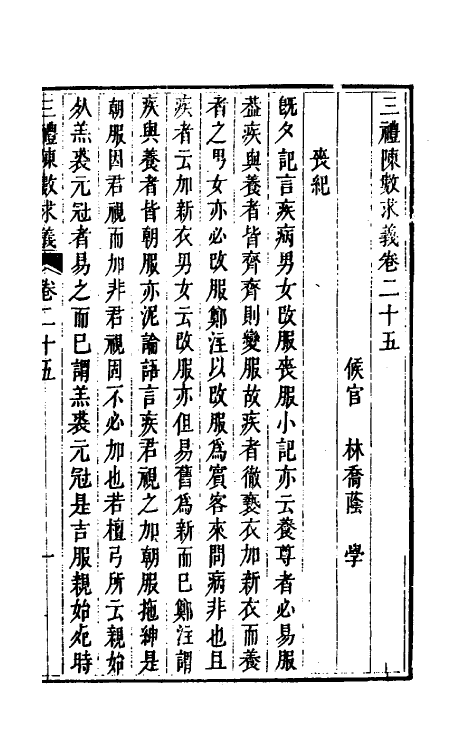 三禮陳數求義卷二十五
候官　林喬蔭　學
喪紀
旣夕記言疾病男女改服喪服小記亦云養尊者必易服
葢疾與養者皆齊齊則變服故疾者徹褻衣加新衣而養
者之男女亦必改服鄭注以改服爲賓客來問病非也且
疾者云加新衣男女云改服亦但易舊爲新而已鄭注謂
疾與養者皆朝服亦泥論語言疾君視之加朝服拖紳是
朝服因君視而加非君視因不必加也若檀弓所云親始
死羔裘元冠者易之而已謂羔裘元冠是吉服親始死時
三禮陳數求義　卷二十五　一